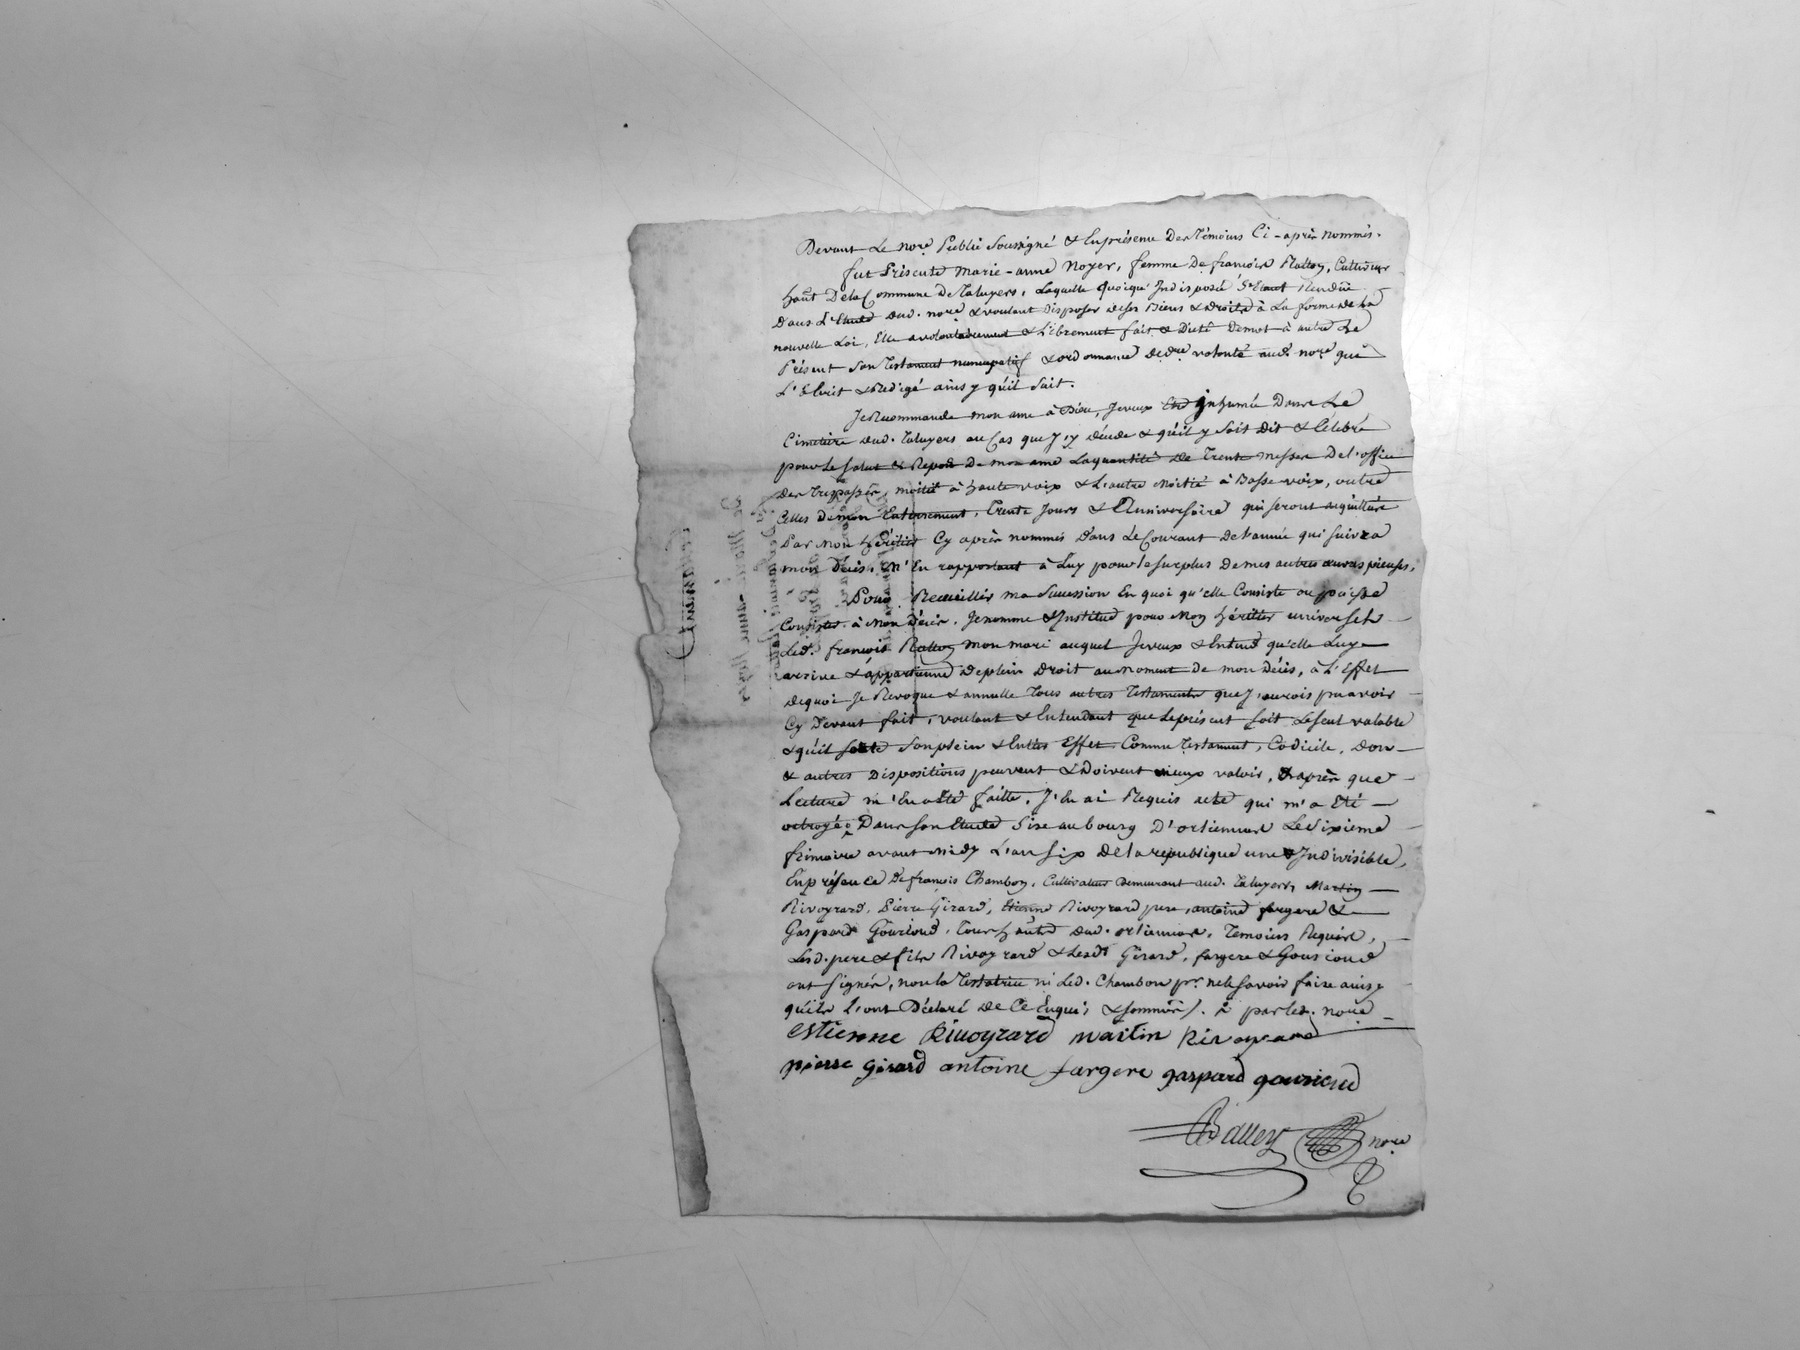 Devant Le nore Public Soussigné & En présence Des Témoins Ci-après nommés.
fut Présente Marie-anne Noyer, femme De francois Rallon, Cultivateur
hant De la Commune De Taluyers, Laquelle quoique Indisposée S'Etant Rendüe
Dans L'Etude dud. nore & voulant Disposer de ses Biens & droits à La forme de La
nouvelle Loi, Elle a volontairement & Librement fait & Dicté de mot à autre Le
Présent Son Testament nuncupatif & ordonnance de dre volonté aud. nore qui
L'Ecrit & Redigé ainsy qu'il Suit.
Je Recommande mon ame à Dieu, Je veux Etre inhumée Dans Le
Cimetiere dud. Taluyers au Cas que J'y décede & qu'il y Soit Dit & Célébré
pour Le Salut & Repos De mon ame La quantité de Trente messes De l'office
des Trépassés, moitié à haute voix & L'autre Moitié à Basse voix, outre
Celles De mon Enterrement, Trente Jours & L'Anniversaire qui Seront aquittées
Par Mon héritier Cy après nommés Dans Le Courant De l'année qui Suivra
mon Décès, M'En rapportant à Luy pour le surplus De mes autres œuvres pieuses.
Pour Recueillir ma Succession En quoi qu'elle Consiste ou puisse
Consister à Mon Décès. Je nomme & Institue pour Mon héritier universel
Led. francois Rallon mon mari auquel Je veux & Entend qu'elle Luy
arrive & appartienne De plein Droit au Moment De mon Décès, à L'Effet
De quoi Je Revoque & annulle Tous autres Testaments que J'aurois pu avoir
Cy Devant fait, voulant & Entendant que Le présent Soit Le Seul valable
& qu'il Sorte Son plein & Entier Effet Comme Testament, Codicile, Don
& autres Dispositions peuvent & Doivent mieux valoir, & après que
Lecture m'En a Eté faitte, J'En ai Requis acte qui m'a Eté
octroyé Dans Son Etude Sise au bourg D'orlienas Le dixieme
frimaire avant Midy L'an Six De la republique une & Indivisible,
En présence De francois Chambon, Cultivateur Demeurant aud. Taluyers, Martin
Rivoyrard, Pierre Girard, Etienne Rivoyrard pere, antoine fargere &
Gaspard Gouzioud, Tous hants dud. orlienas, Temoins Requis,
Lesd. pere & fils Rivoyrard & Lesd. Girard, fargere & Gouzioud
ont Signés, non la Testatrice ni Led. Chambon pr. ne le Savoir faire ainsy
qu'ils L'ont Déclaré De Ce Enquis & Sommés. à par Led. nore
estienne Rivoyrard martin Rivoyrard
pierre Girard antoine fargere gaspard gouzioud
Balley nore